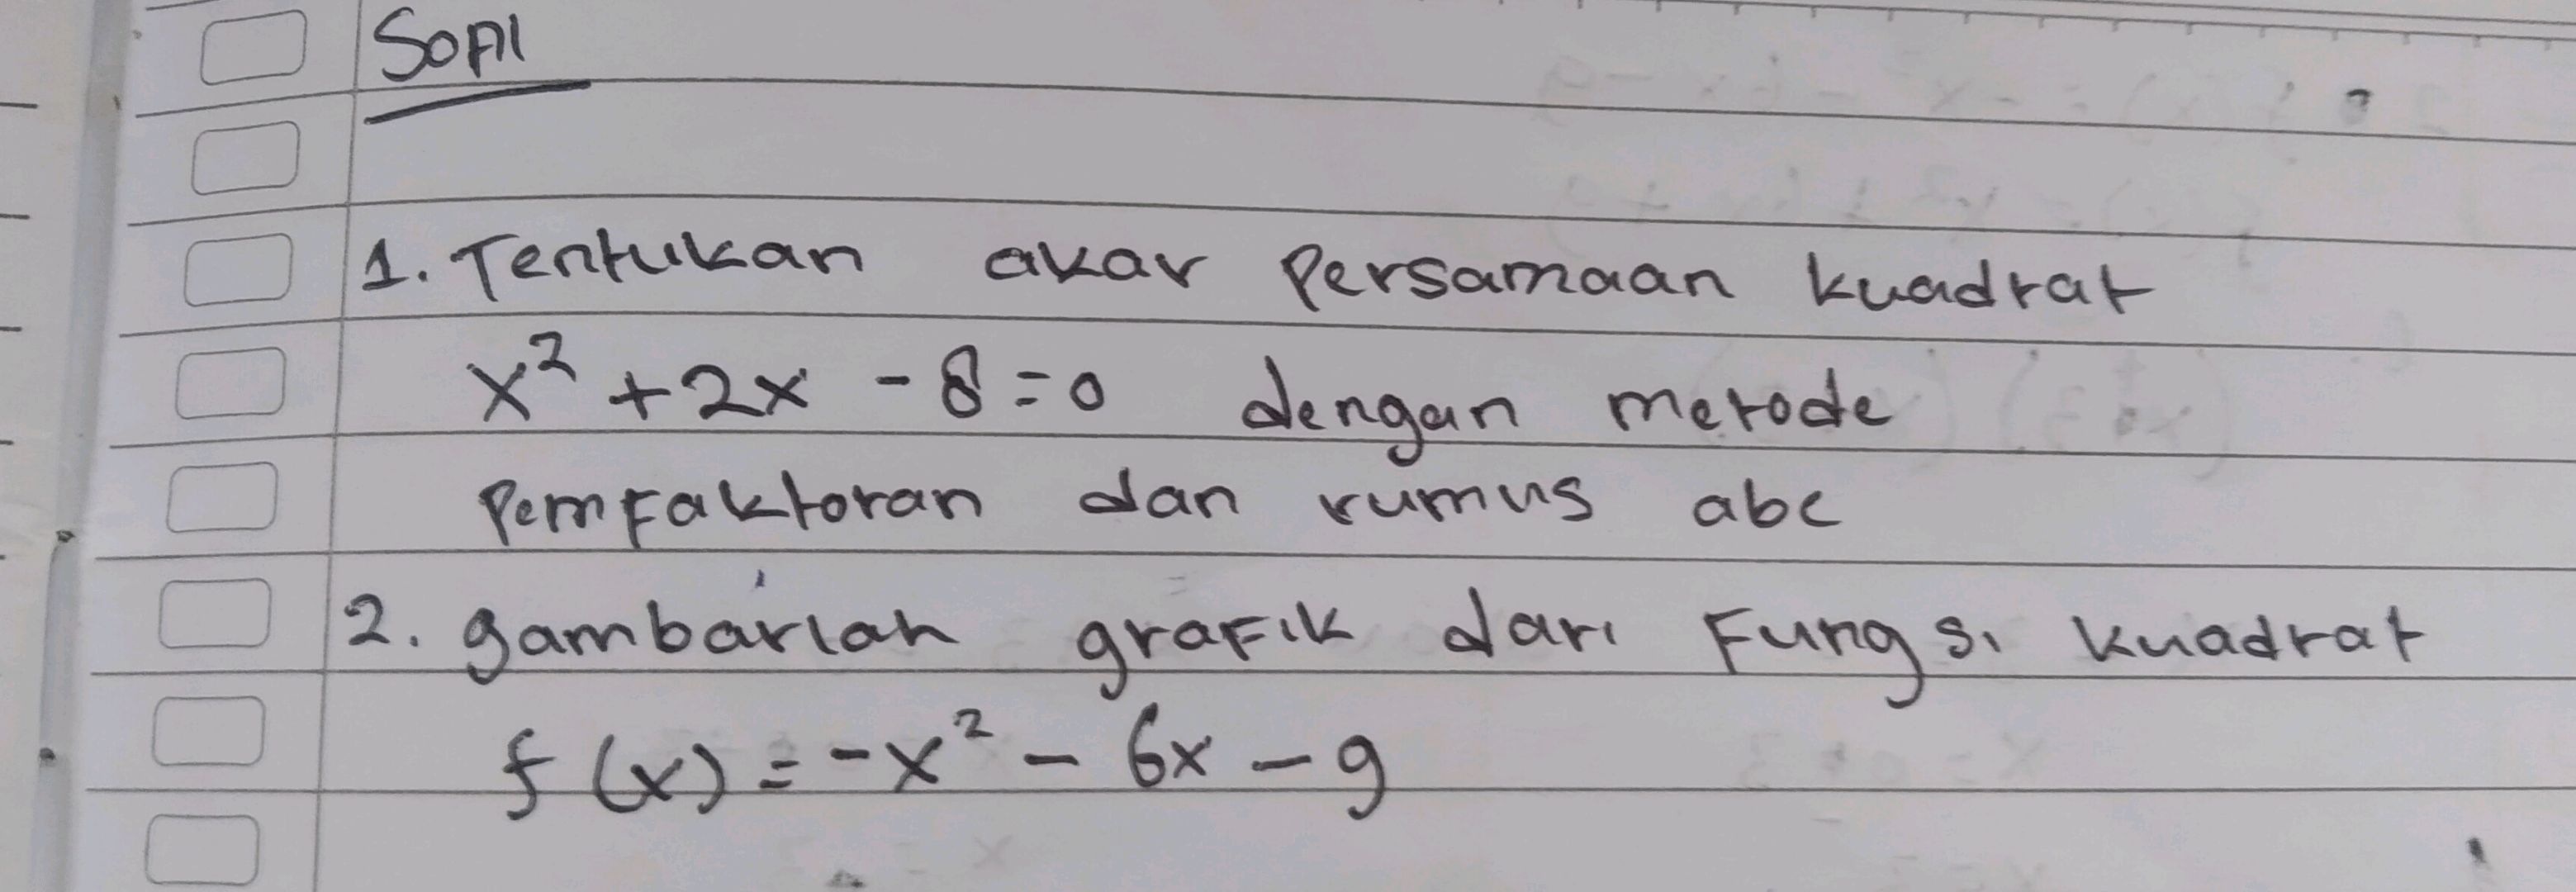 Soal
1. Tentukan akar Persamaan kuadrat
x² + 2x - 8 = 0 dengan metode
Pemfaktoran dan rumus abc
2. gambarlah grafik dari Fungsi kuadrat
f (x) = -x² - 6x - 9